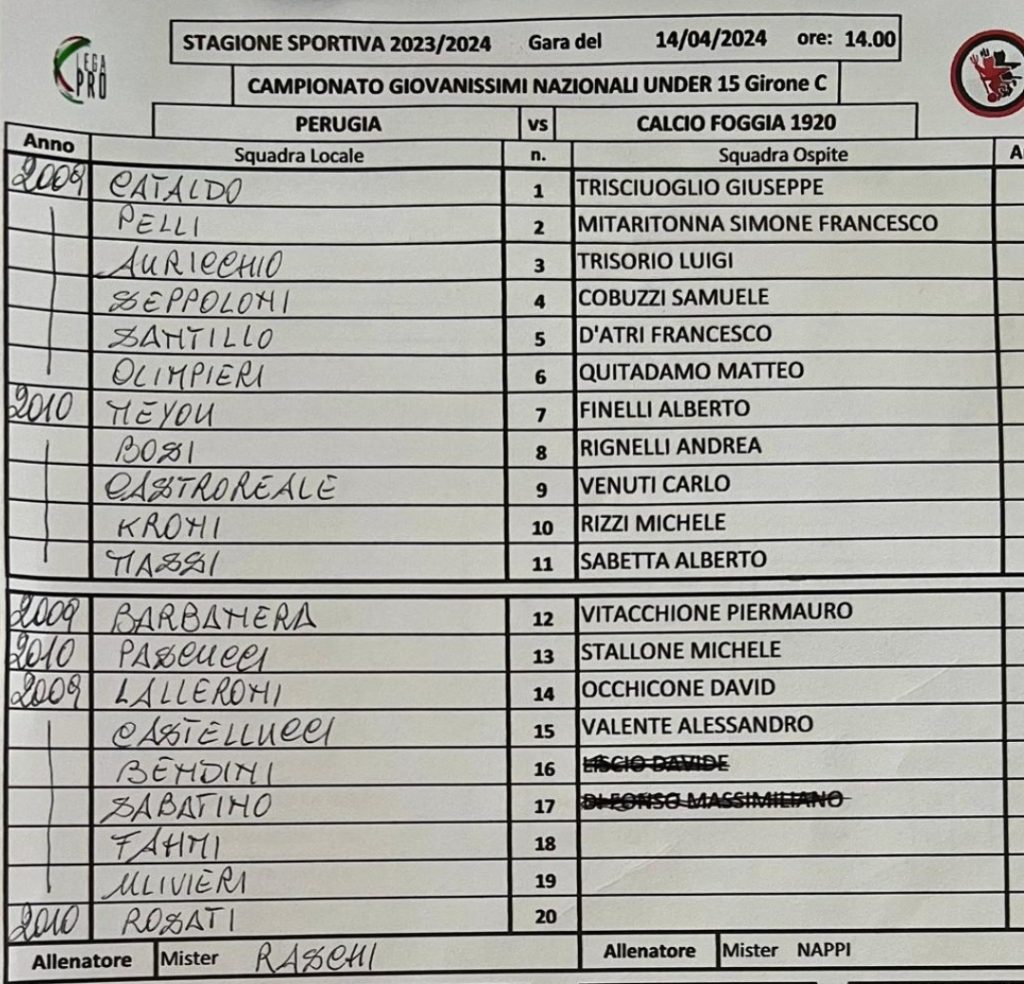 LEGA PRO
STAGIONE SPORTIVA 2023/2024 Gara del 14/04/2024 ore: 14.00
CAMPIONATO GIOVANISSIMI NAZIONALI UNDER 15 Girone C
PERUGIA vs CALCIO FOGGIA 1920
Anno Squadra Locale n. Squadra Ospite
2009 CATALDO 1 TRISCIUOGLIO GIUSEPPE
PELLI 2 MITARITONNA SIMONE FRANCESCO
AURICCHIO 3 TRISORIO LUIGI
SEPPOLONI 4 COBUZZI SAMUELE
SANTILLO 5 D'ATRI FRANCESCO
OLIMPIERI 6 QUITADAMO MATTEO
2010 MEYOU 7 FINELLI ALBERTO
BOSI 8 RIGNELLI ANDREA
CASTROREALE 9 VENUTI CARLO
KRONI 10 RIZZI MICHELE
MASSI 11 SABETTA ALBERTO
2009 BARBANERA 12 VITACCHIONE PIERMAURO
2010 PASCUCCI 13 STALLONE MICHELE
2009 LALLERONI 14 OCCHICONE DAVID
CASTELLUCCI 15 VALENTE ALESSANDRO
BENDINI 16 LISCIO DAVIDE
SABATINO 17 DI FONSO MASSIMILIANO
FAHMI 18
ULIVIERI 19
2010 ROSATI 20
Allenatore Mister RASCHI Allenatore Mister NAPPI